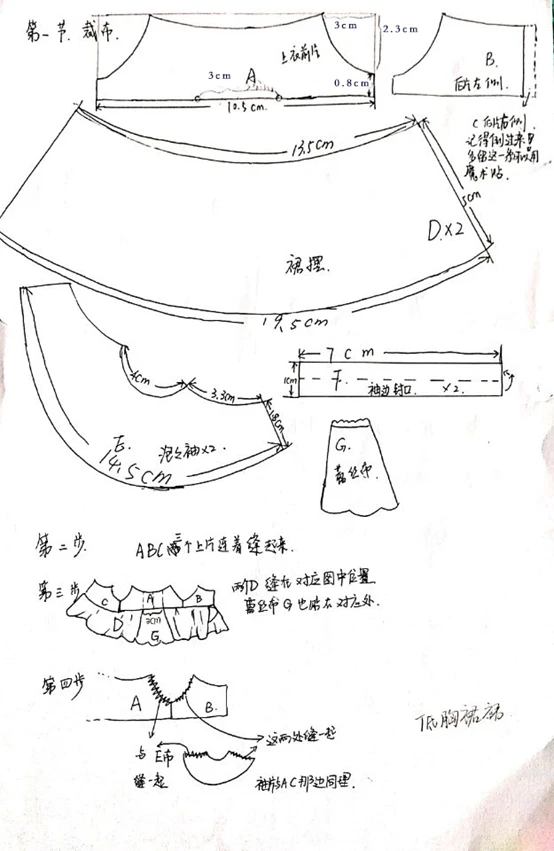 第一节. 裁布.
3cm
2.3cm
上衣前片
A
3cm
0.8cm
10.5cm.
B.
后片左侧.
C 后片右侧.
记得倒过来
多留这一条
魔术贴.
13.5cm
5cm
D.×2
裙摆.
19.5cm
4cm
3.3cm
1.8cm
E.
泡泡袖×2.
14.5cm
7cm
1cm
F.
袖边封口.
×2.
G.
蕾丝布.
第二步.
ABC三个上片连着缝起来.
第三步
C
A
B
D
3cm
G
两个D缝在对应图中位置
蕾丝布G也贴在对应处.
第四步
A
B.
这两处缝一起
与E布
缝一起
袖片AC那边同理.
低胸裙